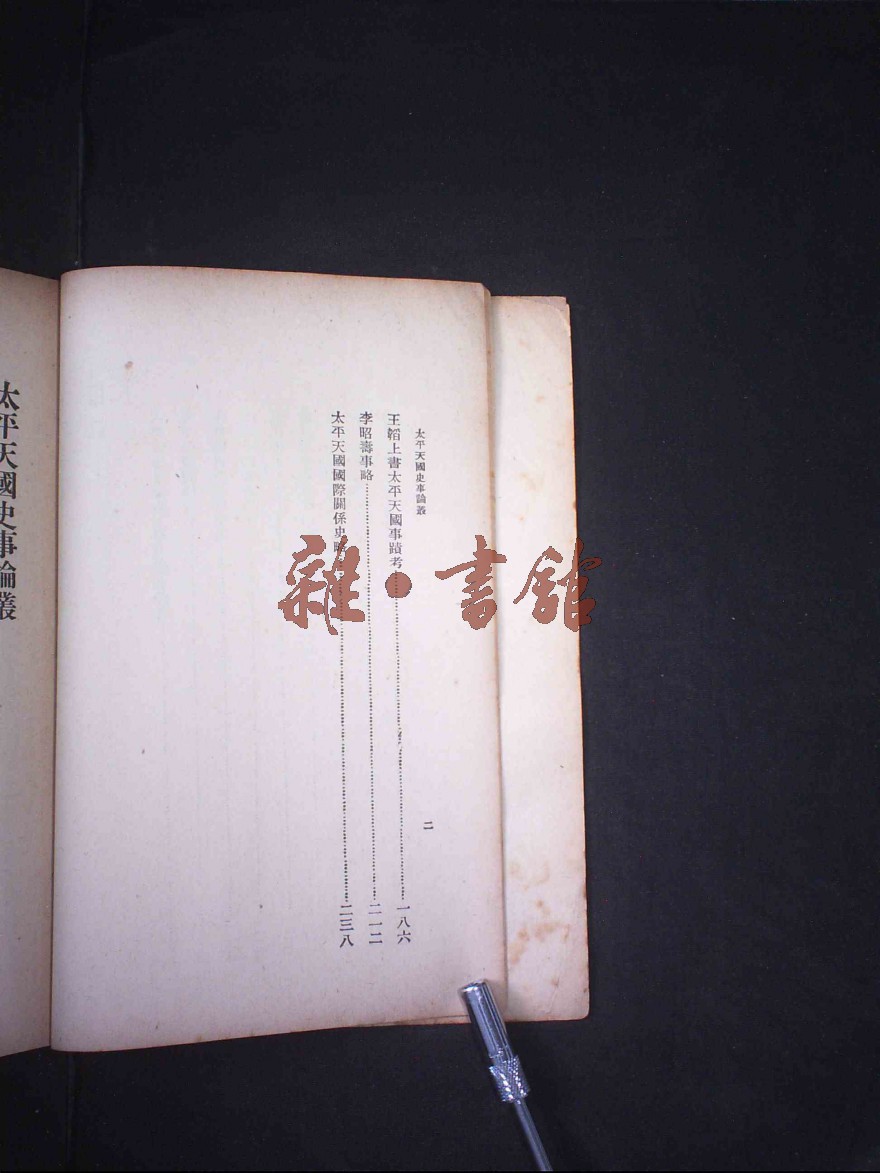 太平天國史事論叢
王韜上書太平天國事蹟考……一八六
李昭壽事略……二一二
太平天國國際關係史略……二三八
二
太平天國史事論叢
雜·書館